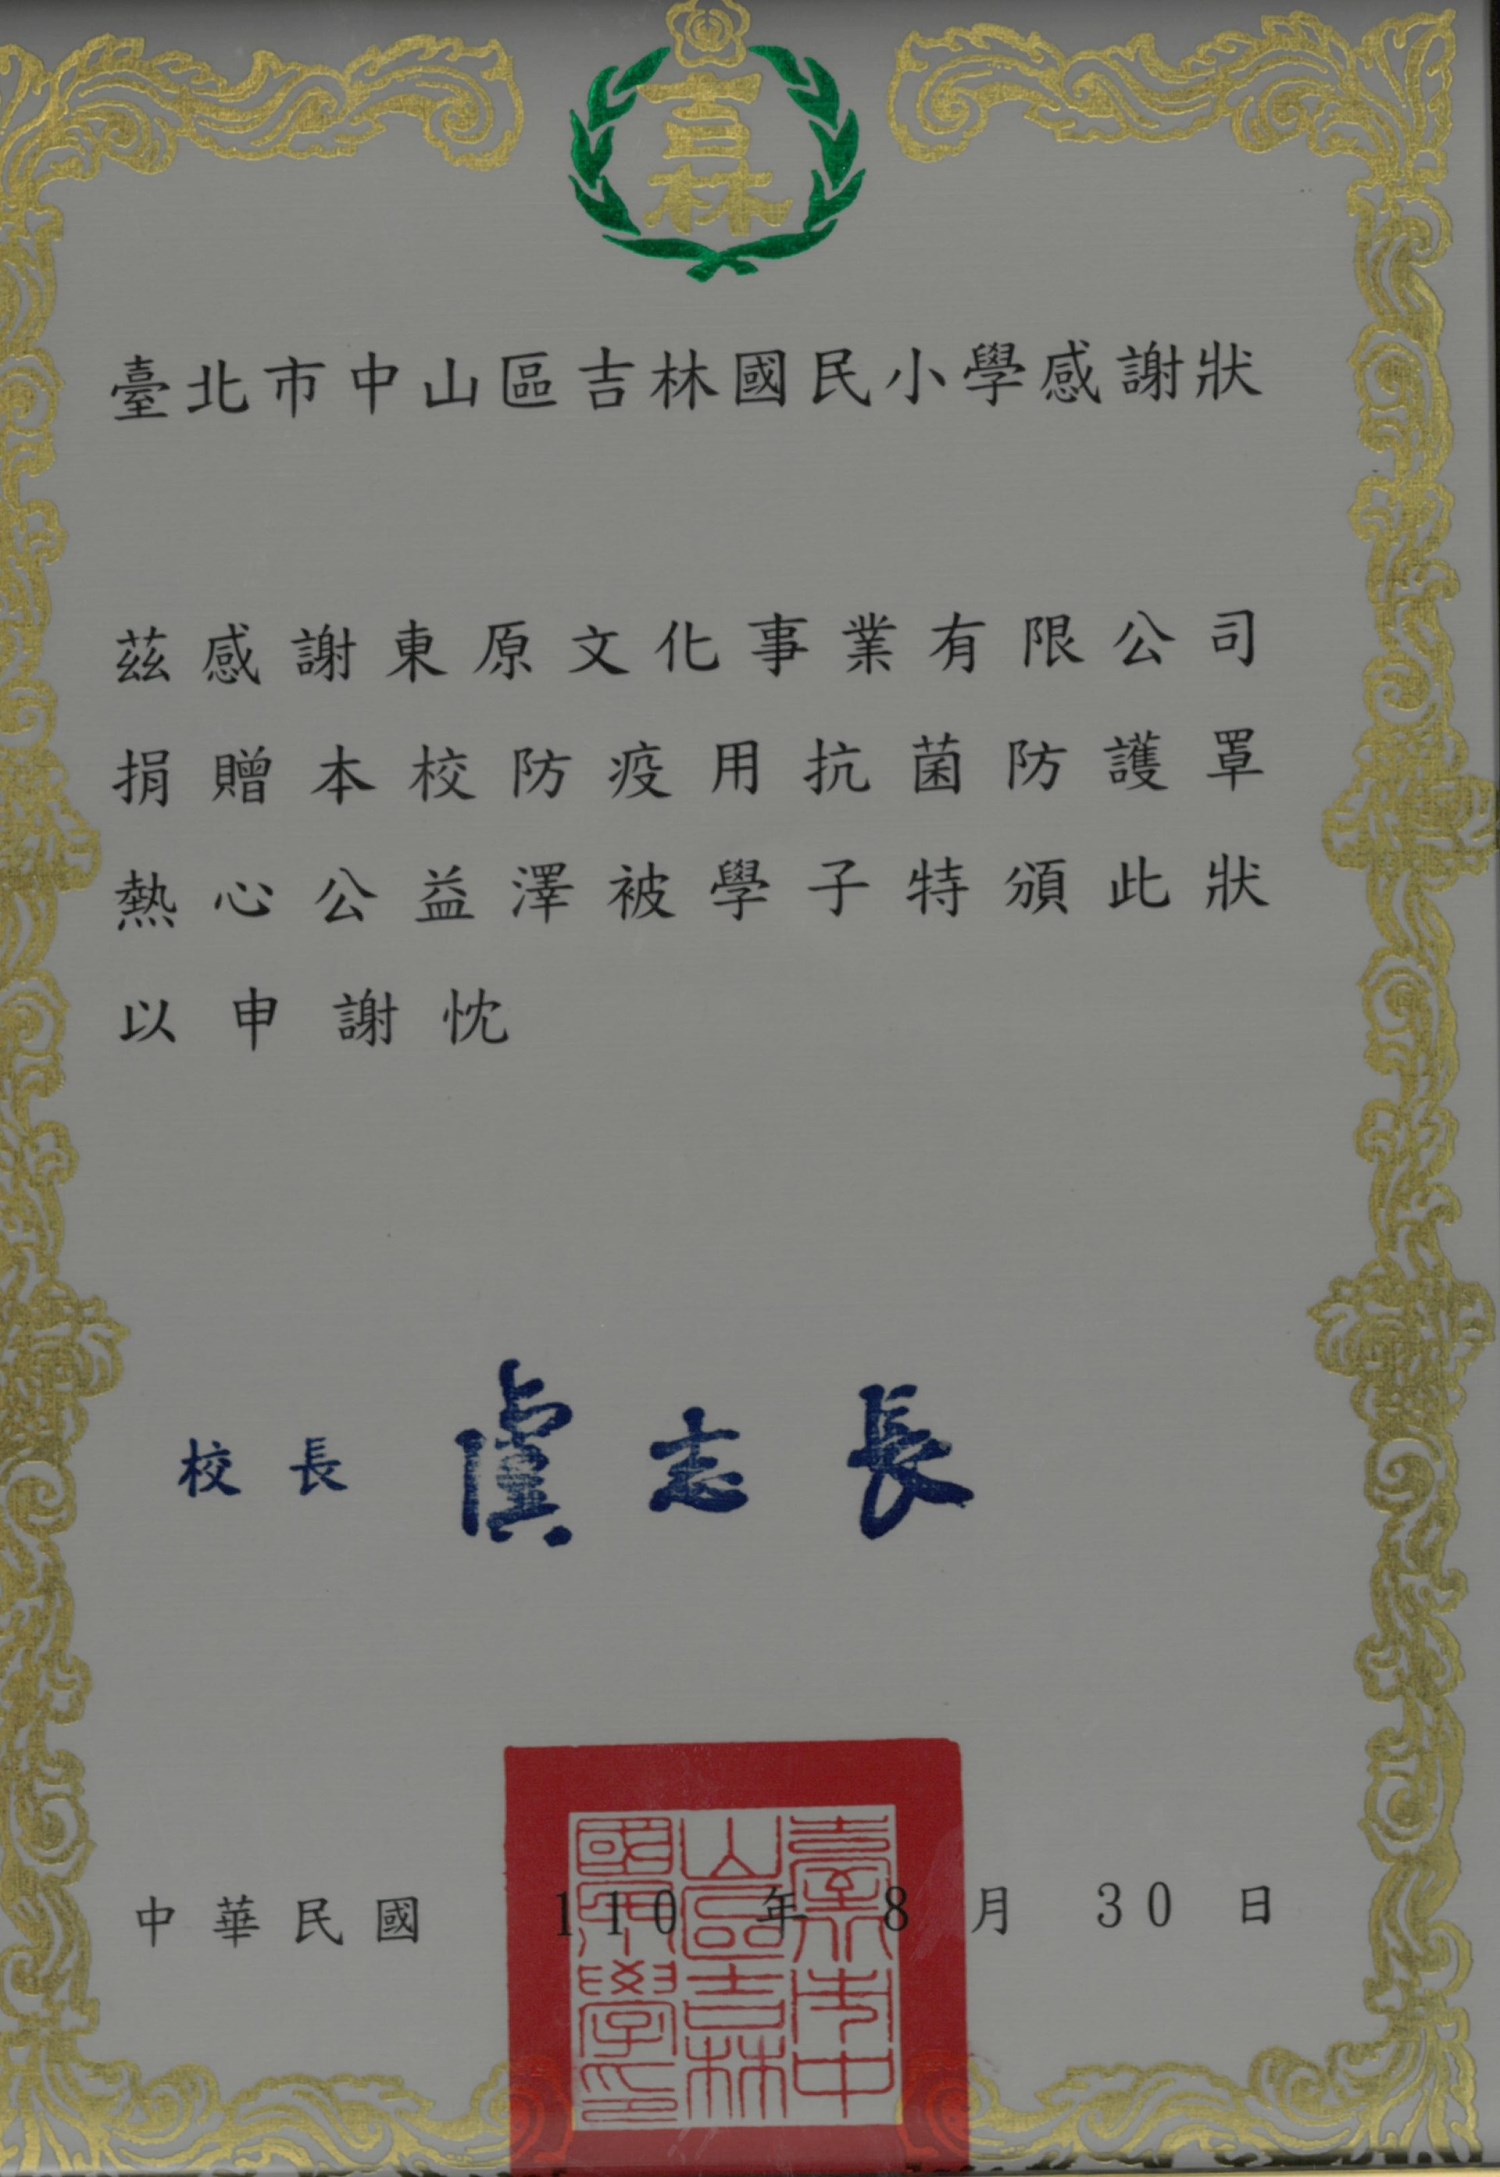 吉林
臺北市中山區吉林國民小學感謝狀
茲感謝東原文化事業有限公司
捐贈本校防疫用抗菌防護罩
熱心公益澤被學子特頒此狀
以申謝忱
校長 虞志長
中華民國 110 年 8 月 30 日
臺北市中山區吉林國民小學印